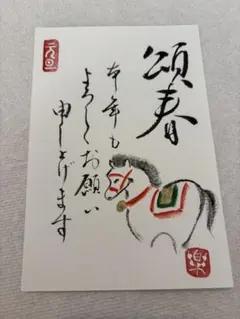 頌春
本年も
よろしくお願い
申し上げます
元旦
楽